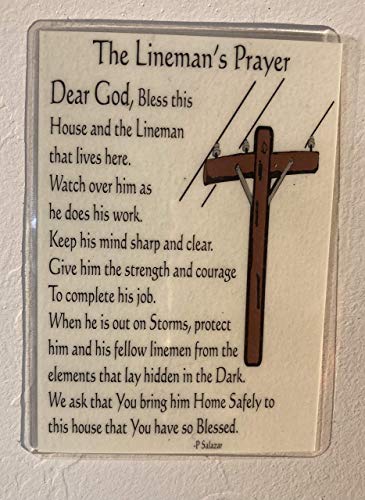 The Lineman's Prayer
Dear God, Bless this
House and the Lineman
that lives here.
Watch over him as
he does his work.
Keep his mind sharp and clear.
Give him the strength and courage
To complete his job.
When he is out on Storms, protect
him and his fellow linemen from the
elements that lay hidden in the Dark.
We ask that You bring him Home Safely to
this house that You have so Blessed.
-P Salazar